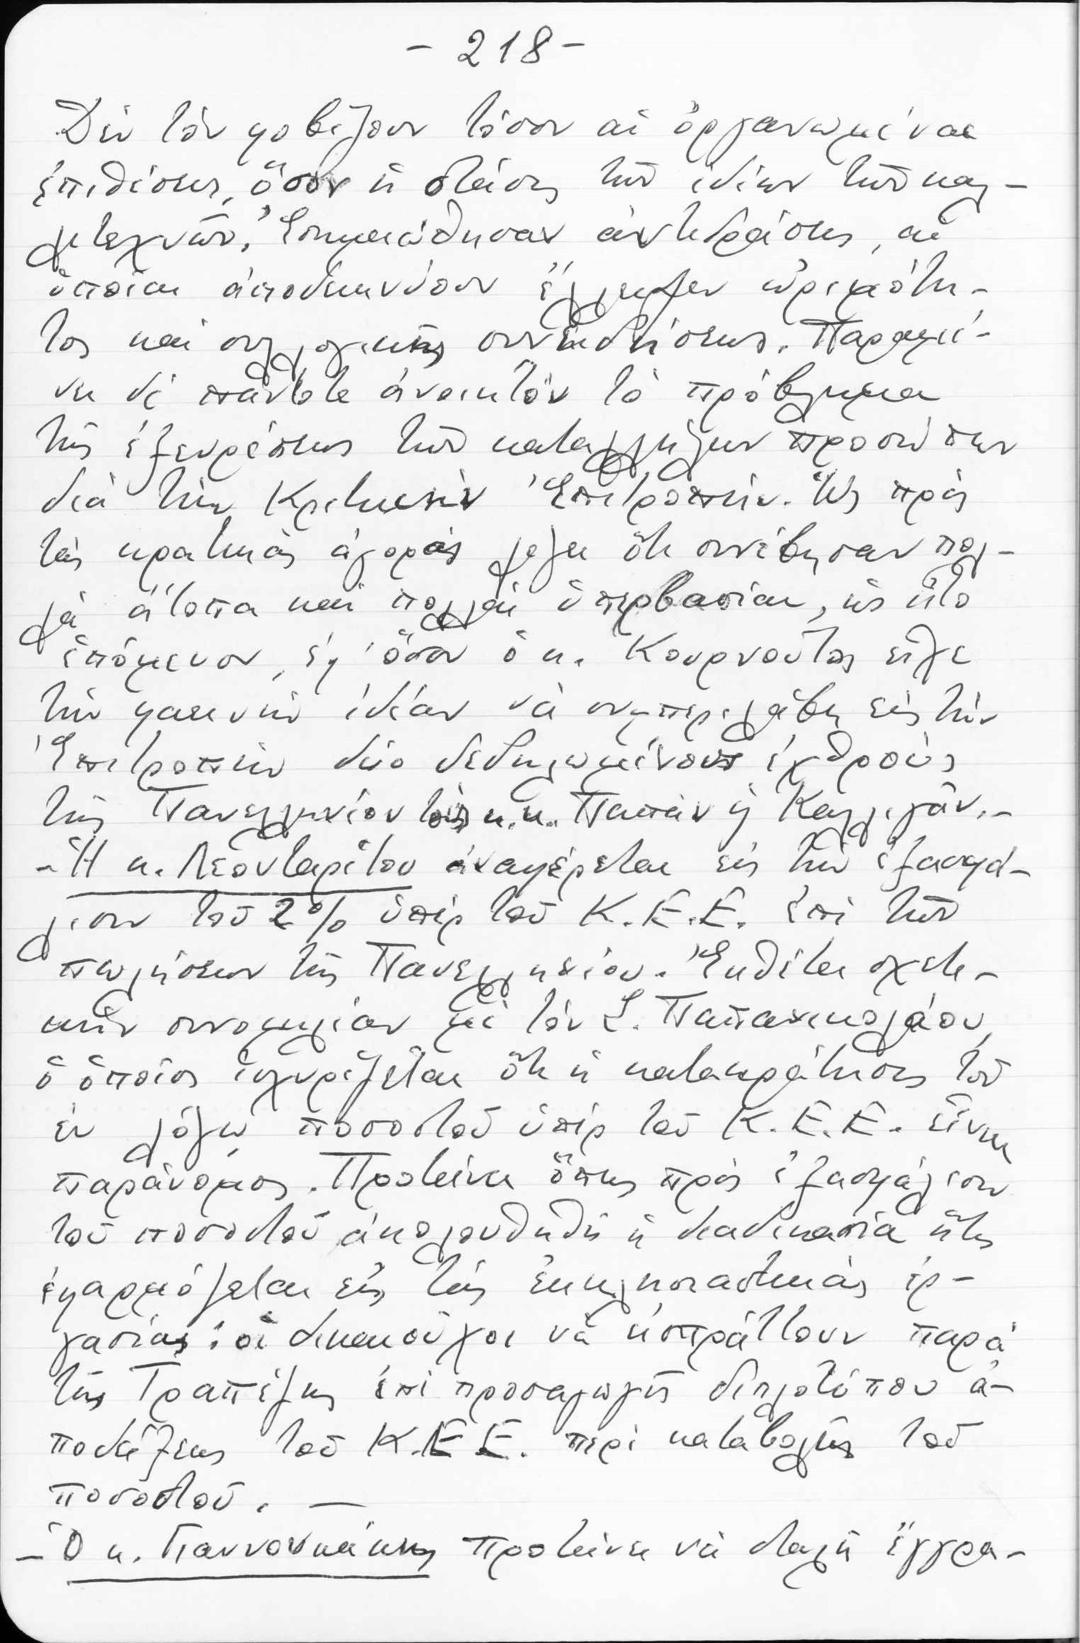 - 218 -
Δὲν τὸν φοβίζουν τόσον αἱ ὀργανωμέναι
ἐπιθέσεις, ὅσον ἡ στάσις τῶν ἰδίων τῶν καλ-
λιτεχνῶν. Ἐσημειώθησαν ἀντιδράσεις, αἱ
ὁποῖαι ἀποδεικνύουν ἔλλειψιν ὡριμότη-
τος καὶ συλλογικῆς συνειδήσεως. Παραμέ-
νει δὲ πάντοτε ἀνοικτὸν τὸ πρόβλημα
τῆς ἐξευρέσεως τῶν καταλλήλων προσώπων
διὰ τὴν Κριτικὴν Ἐπιτροπήν. Ὡς πρὸς
τὰς κρατικὰς ἀγορὰς λέγει ὅτι συνέβησαν πολ-
λὰ ἄτοπα καὶ πολλαὶ ὑπερβασίαι, ὡς ἦτο
ἑπόμενον, ἐφ' ὅσον ὁ κ. Κουρνοῦτος εἶχε
τὴν φαεινὴν ἰδέαν νὰ συμπεριλάβη εἰς τὴν
Ἐπιτροπὴν δύο δεδηλωμένους ἐχθροὺς
τῆς Πανελληνίου τοὺς κ.κ. Παπᾶν ἢ Καλλιγᾶν.-
- Ἡ κ. Λεονταρίτου ἀναφέρεται εἰς τὴν ἐξασφά-
λισιν τοῦ 2% ὑπὲρ τοῦ Κ.Ε.Ε. ἐπὶ τῶν
πωλήσεων τῆς Πανελληνίου. Ἐκθέτει σχετι-
κὴν συνομιλίαν μὲ τὸν Σ. Παπανικολάου,
ὁ ὁποῖος ἰσχυρίζεται ὅτι ἡ κατακράτησις τοῦ
ἐν λόγῳ ποσοστοῦ ὑπὲρ τοῦ Κ.Ε.Ε. εἶναι
παράνομος. Προτείνει ὅπως πρὸς ἐξασφάλισιν
τοῦ ποσοστοῦ ἀκολουθηθῆ ἡ διαδικασία ἥτις
ἐφαρμόζεται εἰς τὰς ἐκκλησιαστικὰς ἐρ-
γασίας: οἱ δικαιοῦχοι νὰ εἰσπράττουν παρὰ
τῆς Τραπέζης ἐπὶ προσαγωγῆς διπλοτύπου ἀ-
ποδείξεως τοῦ Κ.Ε.Ε. περὶ καταβολῆς τοῦ
ποσοστοῦ. —
- Ὁ κ. Γιαννουκάκης προτείνει νὰ σταλῆ ἔγγρα-